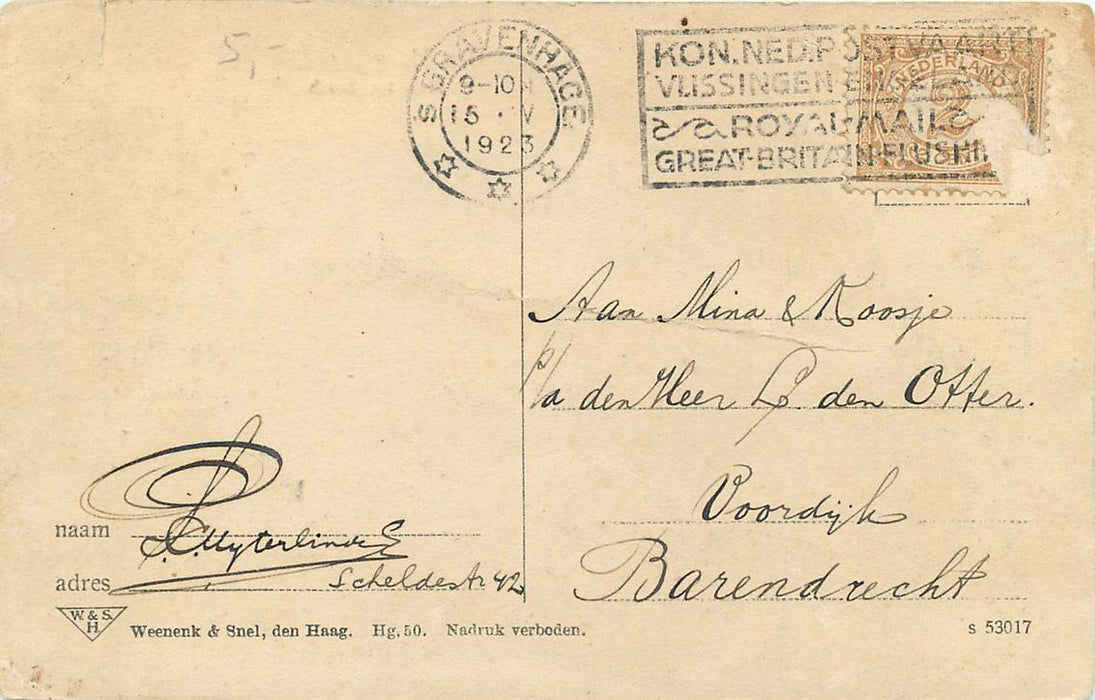 5,-
S GRAVENHAGE
9-10
15 . V
1923
KON.NED.POSTVAART
VLISSINGEN
ROYAL MAIL
GREAT-BRITAIN-FLUSHI
NEDERLAND
2
Aan Mina & Koosje
p/a den Heer P. den Otter.
Voordijk
Barendrecht
naam
Uyterlinde
adres Scheldestr 42
W. & S.
H
Weenenk & Snel, den Haag. Hg. 50. Nadruk verboden.
s 53017